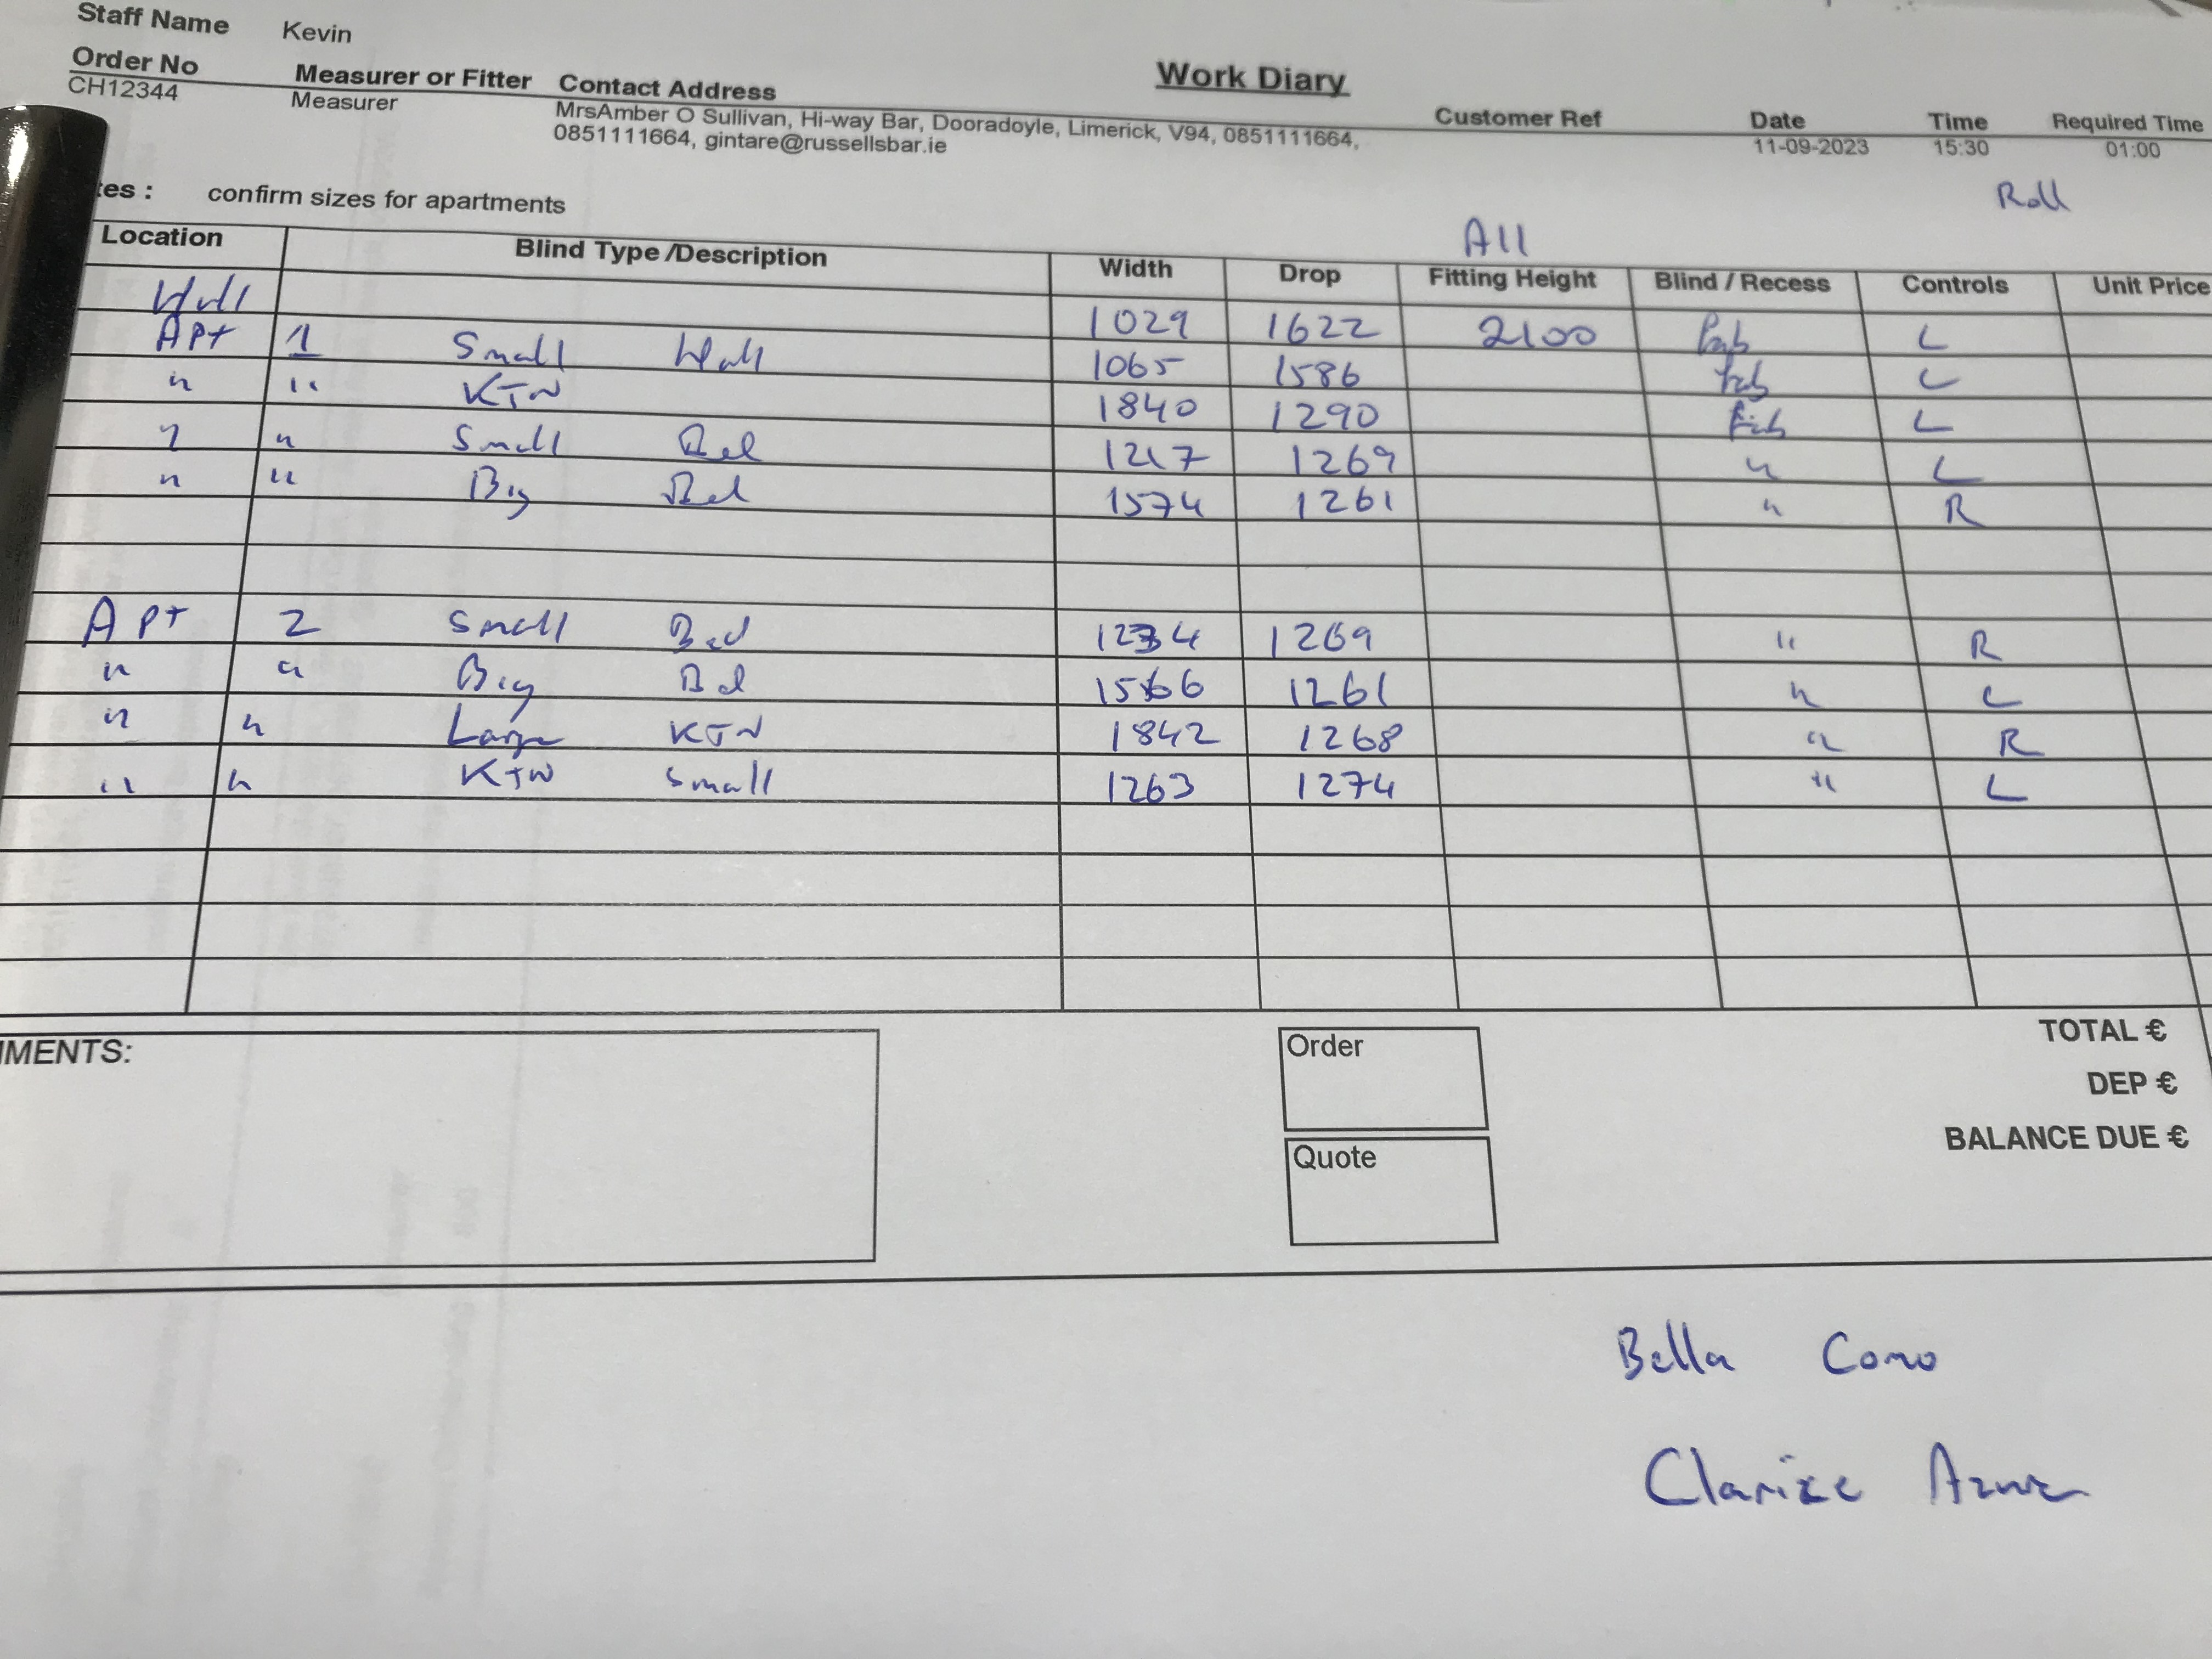 Staff Name Kevin
Work Diary
Order No Measurer or Fitter Contact Address Customer Ref Date Time Required Time
CH12344 Measurer MrsAmber O Sullivan, Hi-way Bar, Dooradoyle, Limerick, V94, 0851111664, 11-09-2023 15:30 01:00
0851111664, gintare@russellsbar.ie
tes : confirm sizes for apartments
Roll
All
Location Blind Type /Description Width Drop Fitting Height Blind / Recess Controls Unit Price
Hall 1029 1622 2100 L
Apt 1 Small Hall 1065 1586 Fab L
" " KTN 1840 1290 Fab L
" Small Bed 1217 1269 " L
" " Big Bed 1574 1261 " R
Apt 2 Small Bed 1234 1269 " R
" " Big Bed 1566 1261 " L
" " Large KTN 1842 1268 " R
" " KTN Small 1263 1274 " L
MMENTS:
Order
Quote
TOTAL €
DEP €
BALANCE DUE €
Bella Como
Clarize